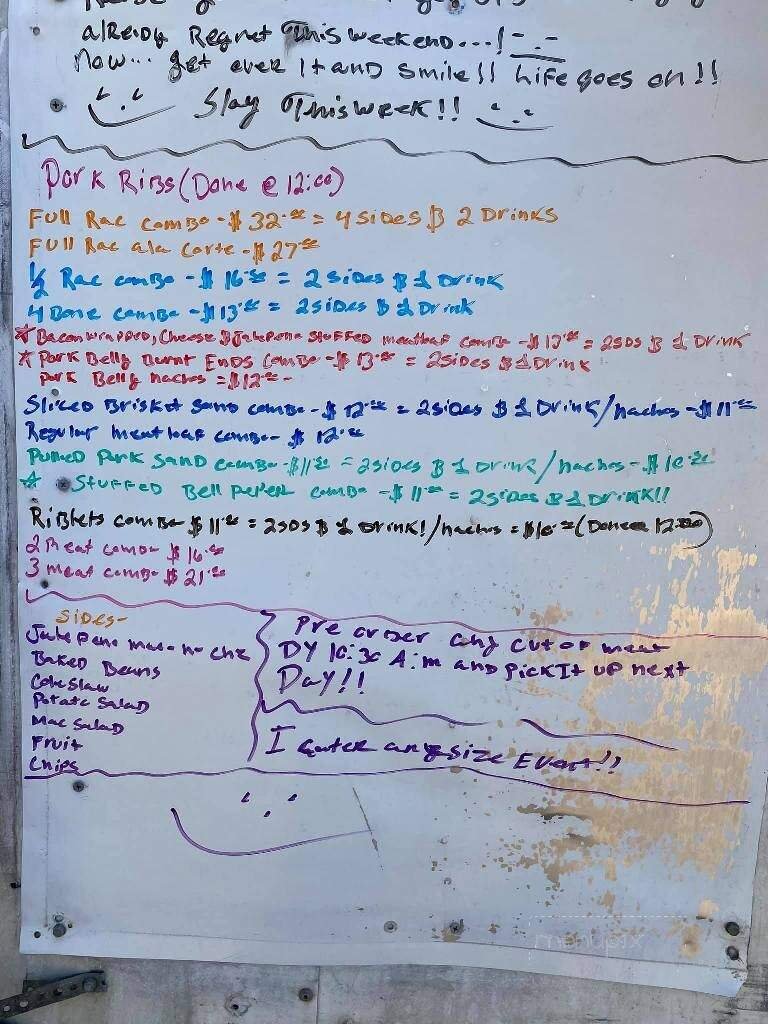 already Regret This weekend...!
now... get over It and smile!! Life goes on!!
Slay This week!!
Pork Ribs (Done @ 12:00)
Full Rac comBo - $32.00 = 4 sides & 2 Drinks
Full Rac ala carte - $27.00
1/2 Rac comBo - $16.00 = 2 sides & 1 Drink
4 Bone comBo - $13.00 = 2 sides & 1 Drink
☆ Bacon wrapped, Cheese & Jalepeno stuffed meatloaf comBo - $13.00 = 2 sDs & 1 Drink
☆ Pork Belly Burnt Ends comBo - $13.00 = 2 sides & 1 Drink
Pork Belly nachos = $12.00 -
Sliced Brisket sand comBo - $12.00 = 2 sides & 1 Drink/nachos - $11.00
Regular meatloaf comBo - $12.00
Pulled Pork Sand comBo - $11.00 = 2 sides & 1 Drink/nachos - $10.00
☆ Stuffed Bell Pepper comBo - $11.00 = 2 sides & 1 Drink!!
Riblets comBo $11.00 = 2 sDs & 1 Drink!/nachos = $10.00 (Done @ 12:00)
2 meat comBo $16.00
3 meat comBo $21.00
Sides -
Jalepeno mac-n-chz
Baked Beans
Coleslaw
Potato salad
Mac salad
Fruit
Chips
Pre order any cut of meat
By 10:30 A.m and pick It up next
Day!!
I cater any size Event!!
menupix